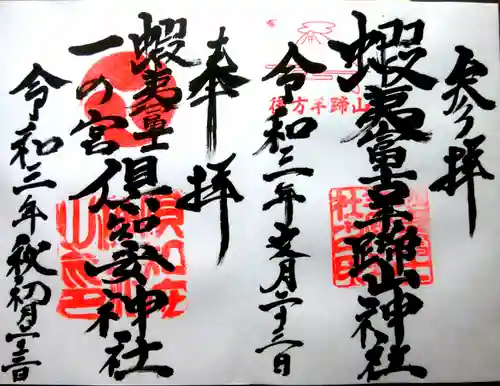 奉拝
蝦夷富士
一の宮
倶知安神社
令和三年秋初月二十三日
奉拝
蝦夷富士羊蹄山神社
後方羊蹄山
令和三年文月二十三日